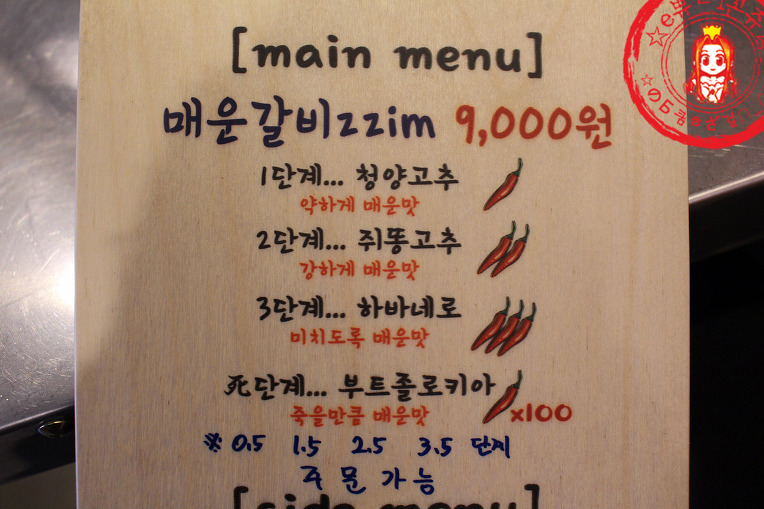 [main menu]
매운갈비zzim 9,000원
1단계... 청양고추
약하게 매운맛
2단계... 쥐똥고추
강하게 매운맛
3단계... 하바네로
미치도록 매운맛
死단계... 부트졸로키아
죽을만큼 매운맛 x100
※ 0.5 1.5 2.5 3.5 단계
주문가능
[side menu]